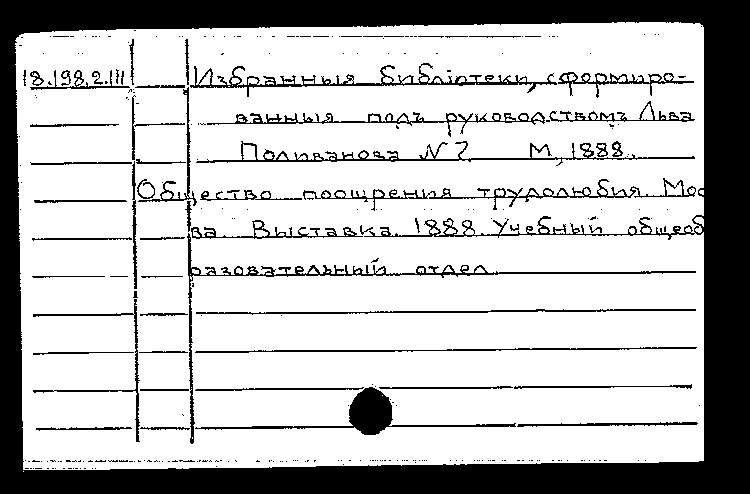 18.198.2.III Избранныя библіотеки, сформиро-
ванныя подъ руководствомъ Льва
Поливанова N 7. М, 1888.
Общество поощрения трудолюбия. Мос
ва. Выставка. 1888. Учебный общеоб
разовательный отдел